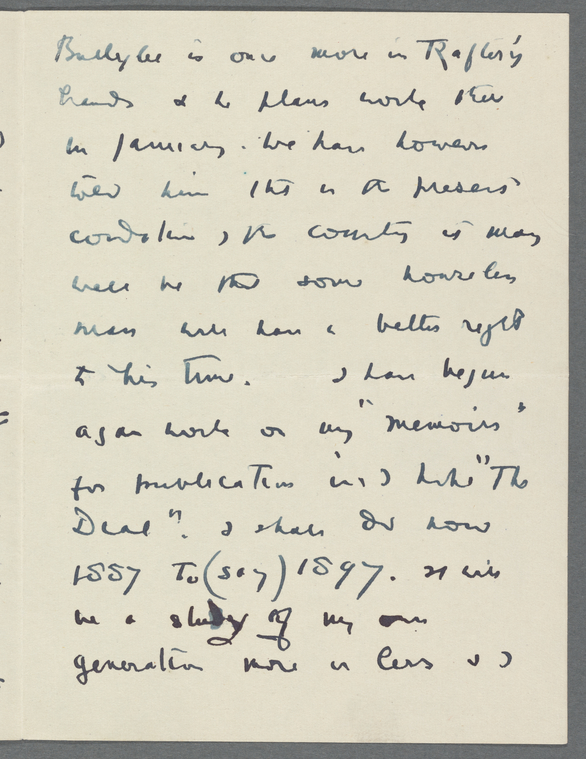 Ballylee is once more in Raftery's
hands & he plans work there
in January. We have however
told him that in the present
condition of the country it may
well be that some homeless
man will have a better right
to his time. I have begun
again work on my "memoirs"
for publication in I hope "The
Dial". I shall do now
1887 To (say) 1897. It will
be a study of my own
generation more or less & I